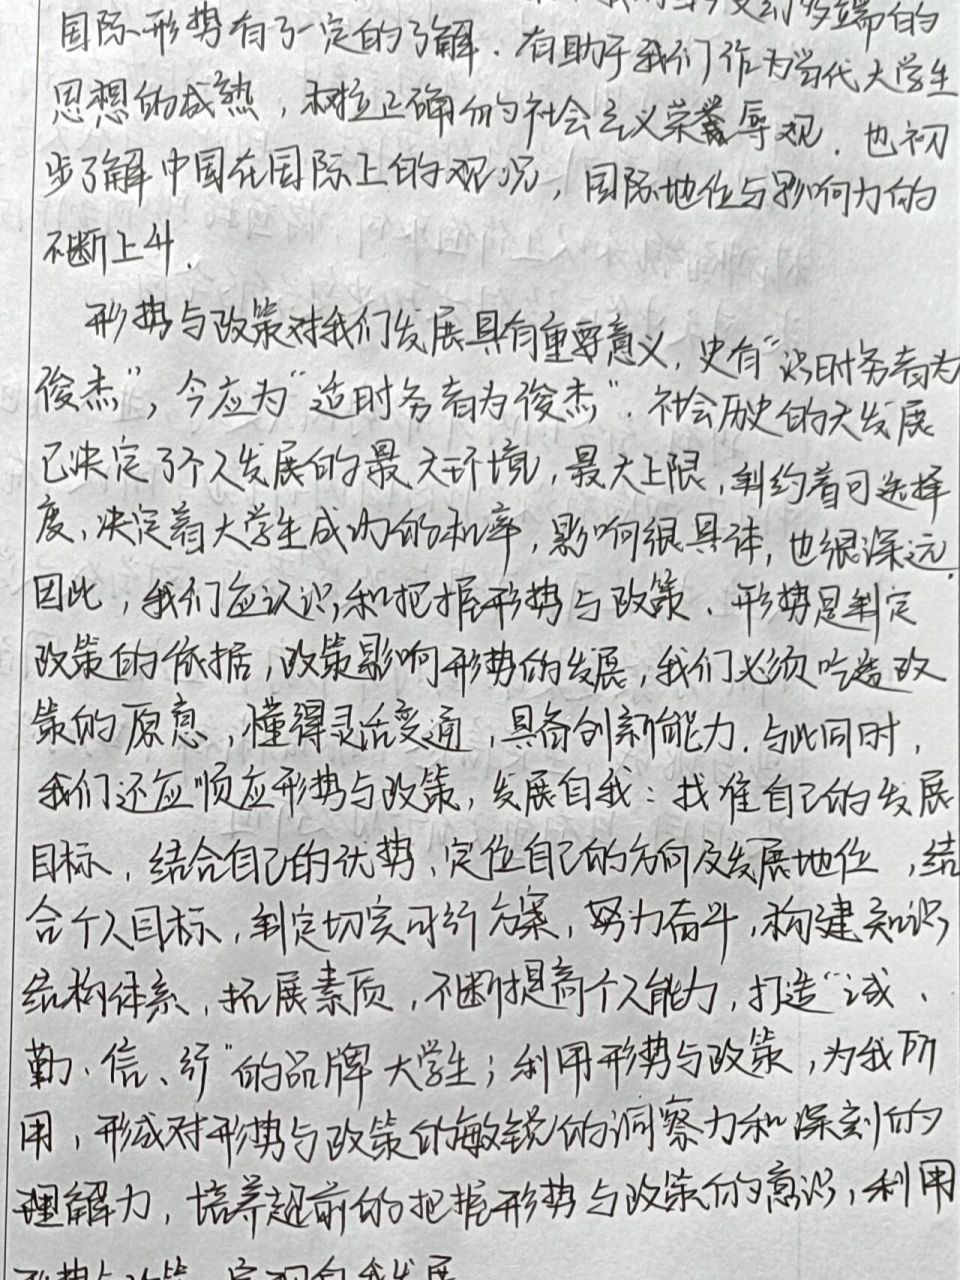 国际形势有了一定的了解．有助于我们作为当代大学生
思想的成熟，树立正确的社会主义荣辱观．也初
步了解中国在国际上的观况，国际地位与影响力的
不断上升．
形势与政策对我们发展具有重要意义，史有“识时务者为
俊杰”，今应为“适时务者为俊杰”．社会历史的大发展
已决定了个人发展的最大环境，最大上限，制约着可选择
度，决定着大学生成功的机率，影响很具体，也很深远．
因此，我们应认识和把握形势与政策．形势是制定
政策的依据，政策影响形势的发展，我们必须吃透政
策的原意，懂得灵活变通，具备创新能力．与此同时，
我们还应顺应形势与政策，发展自我：找准自己的发展
目标，结合自己的优势、定位自己的方向及发展地位，结
合个人目标，制定切实可行方案，努力奋斗，构建知识
结构体系，拓展素质，不断提高个人能力，打造“诚、
勤、信、行”的品牌大学生；利用形势与政策，为我所
用，形成对形势与政策的敏锐的洞察力和深刻的
理解力，培养超前的把握形势与政策的意识，利用
形势与政策 实现自我发展